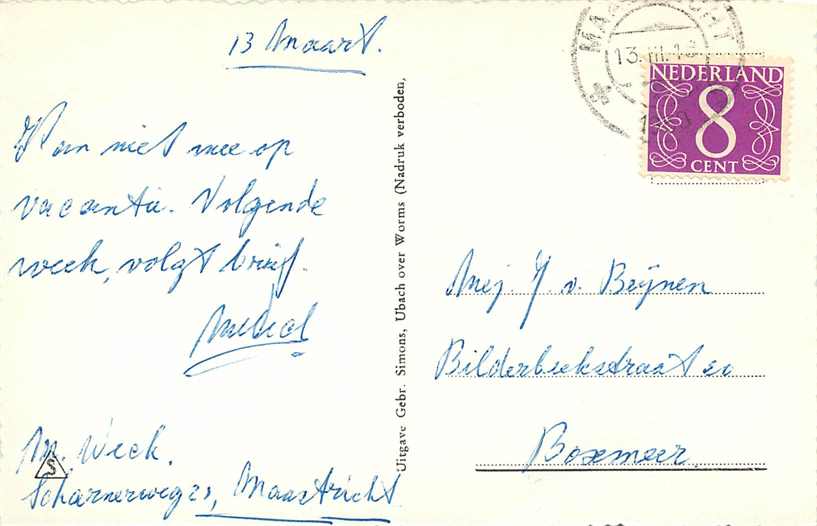 13 Maart.
Kan niet mee op
vacantie. Volgende
week, volgt brief.
Michel
M. Weck.
Scharnerweg 25, Maastricht
Uitgave Gebr. Simons, Ubach over Worms (Nadruk verboden,
13.III.
NEDERLAND
8
CENT
Mej. Y. v. Beijnen
Bilderbeekstraat 20
Boxmeer
S